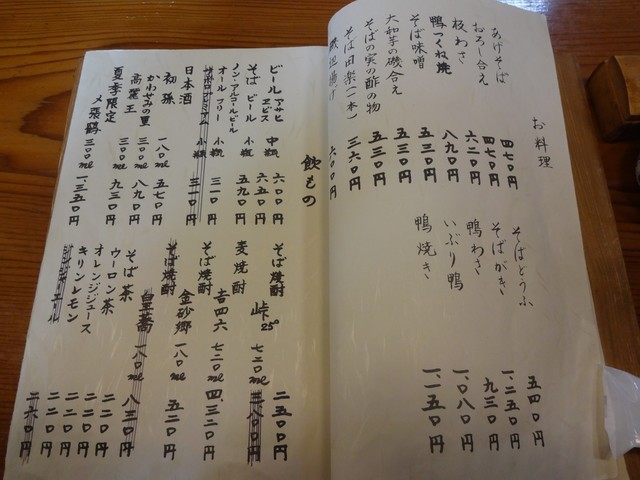 お料理
あげそば 四七〇円
おろし合え 四七〇円
板わさ 六二〇円
鴨つくね焼 八九〇円
そば味噌 五三〇円
大和芋の磯合え 五三〇円
そばの実の酢の物 五三〇円
そば田楽(二本) 三六〇円
六〇〇円
そばどうふ 五四〇円
そばがき 一、二五〇円
鴨わさ 九三〇円
いぶり鴨 一、〇八〇円
鴨焼き 一、一五〇円
飲もの
ビール アサヒ ヱビス 中瓶 六〇〇円 六五〇円
そば ビール 小瓶 五九〇円
ノン・アルコールビール オール フリー 小瓶 三一〇円
小瓶 三一〇円
日本酒
初孫 一八〇ml 五七〇円
かわせみの里 三〇〇ml 八九〇円
高麗王 三〇〇ml 九三〇円
夏季限定 〆張鶴 三〇〇ml 一、三五〇円
そば焼酎 峠 25° 七二〇ml 二、五〇〇円
麦焼酎 吉四六 七二〇ml 四、三二〇円
そば焼酎 金砂郷 一八〇ml 五二〇円
そば焼酎 一八〇ml 八三〇円
そば茶 二二〇円
ウーロン茶 二二〇円
オレンジジュース 二二〇円
キリンレモン 二二〇円
二六〇円